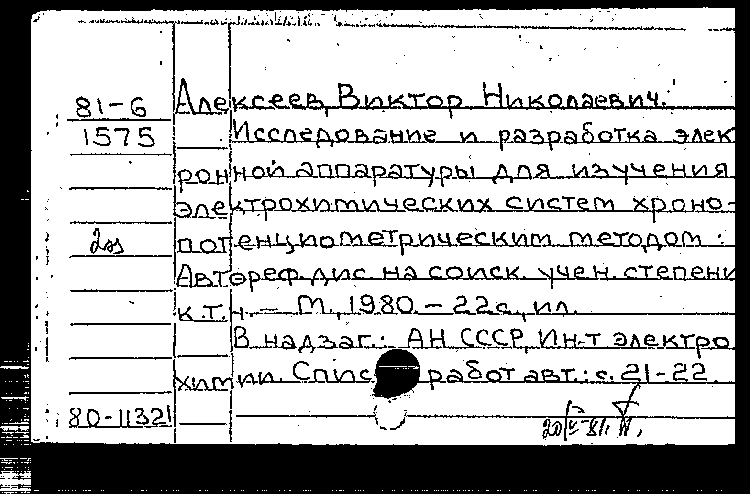 81-6 Алексеев, Виктор Николаевич.
1575 Исследование и разработка элек
ронной аппаратуры для изучения
электрохимических систем хроно-
2дз потенциометрическим методом:
Автореф. дис. на соиск. учен. степени
к.т.н. — М., 1980. — 22с., ил.
В надзаг.: АН СССР, Ин-т электро
химии. Спис работ авт.: с. 21-22.
80-11321